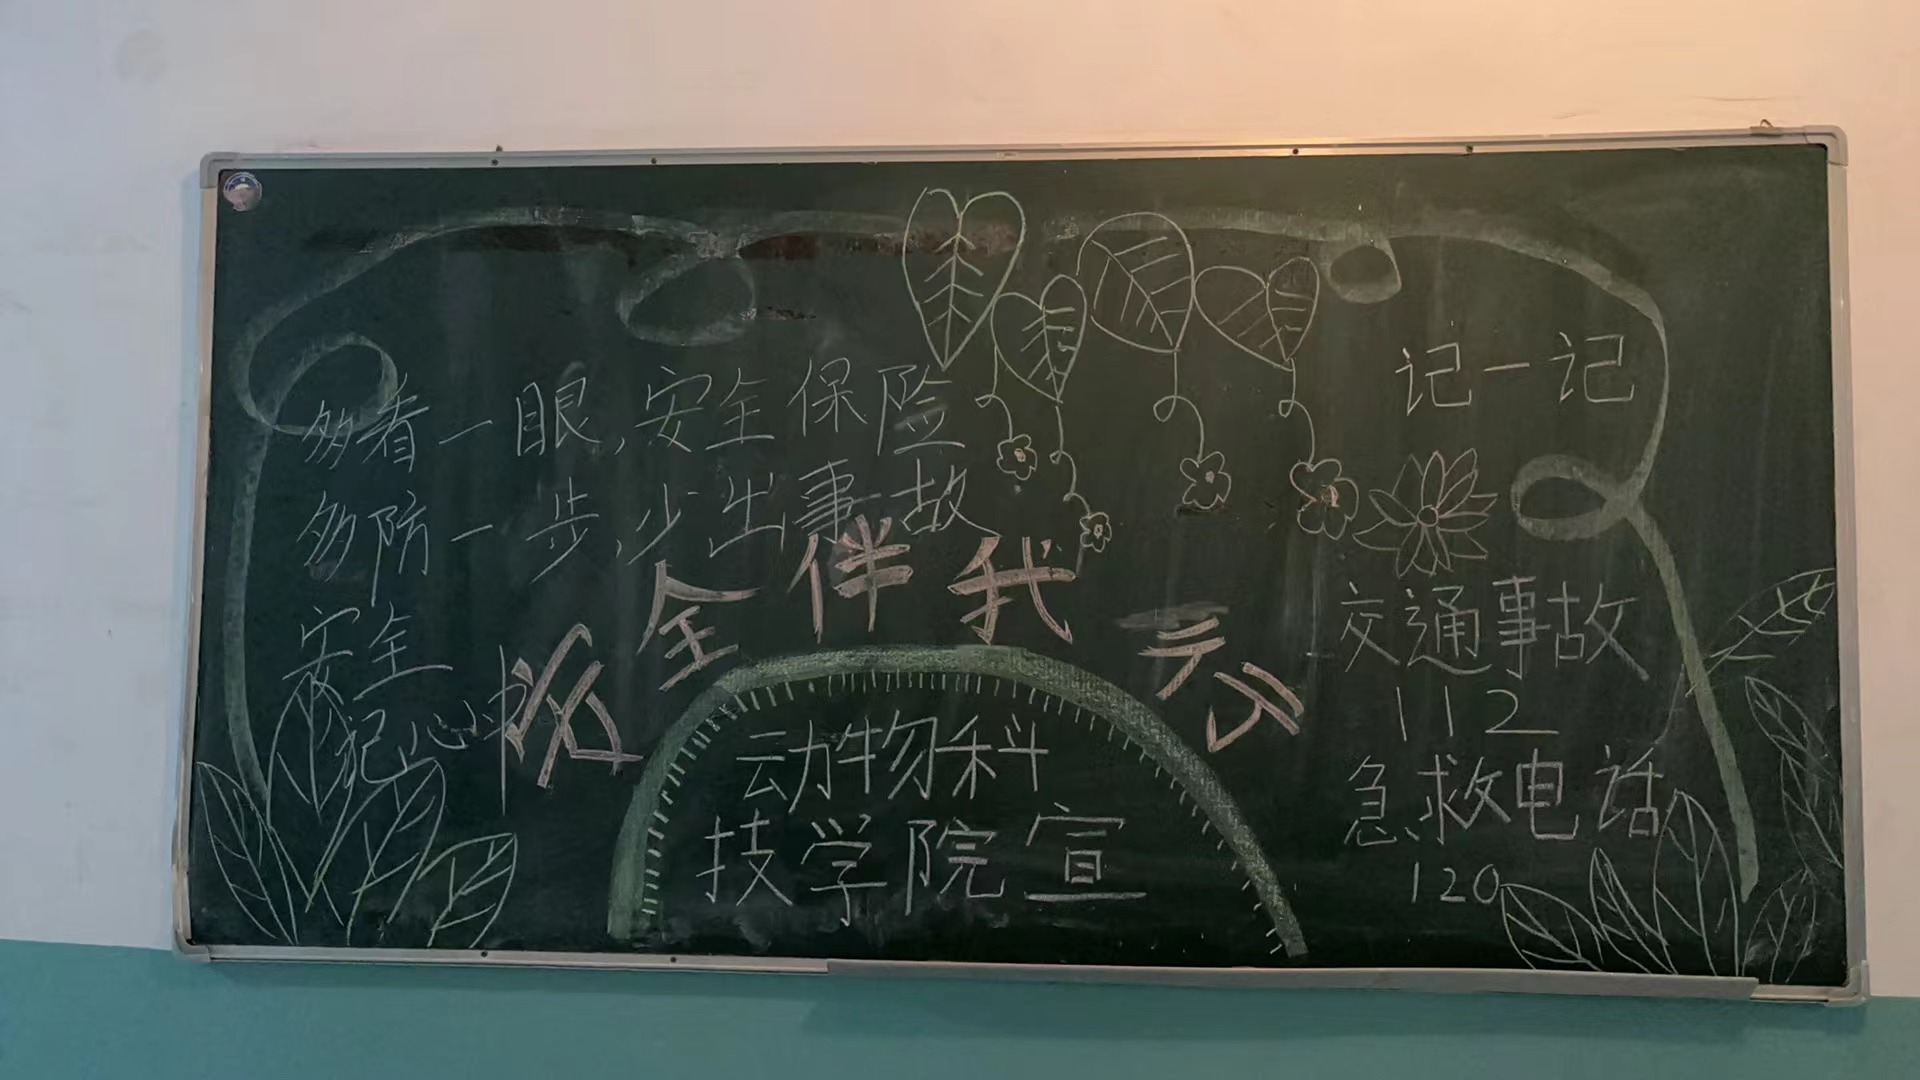 多看一眼,安全保险
多防一步,少出事故
安全
记心中
安全伴我行
动物科
技学院宣
记一记
交通事故
112
急救电话
120